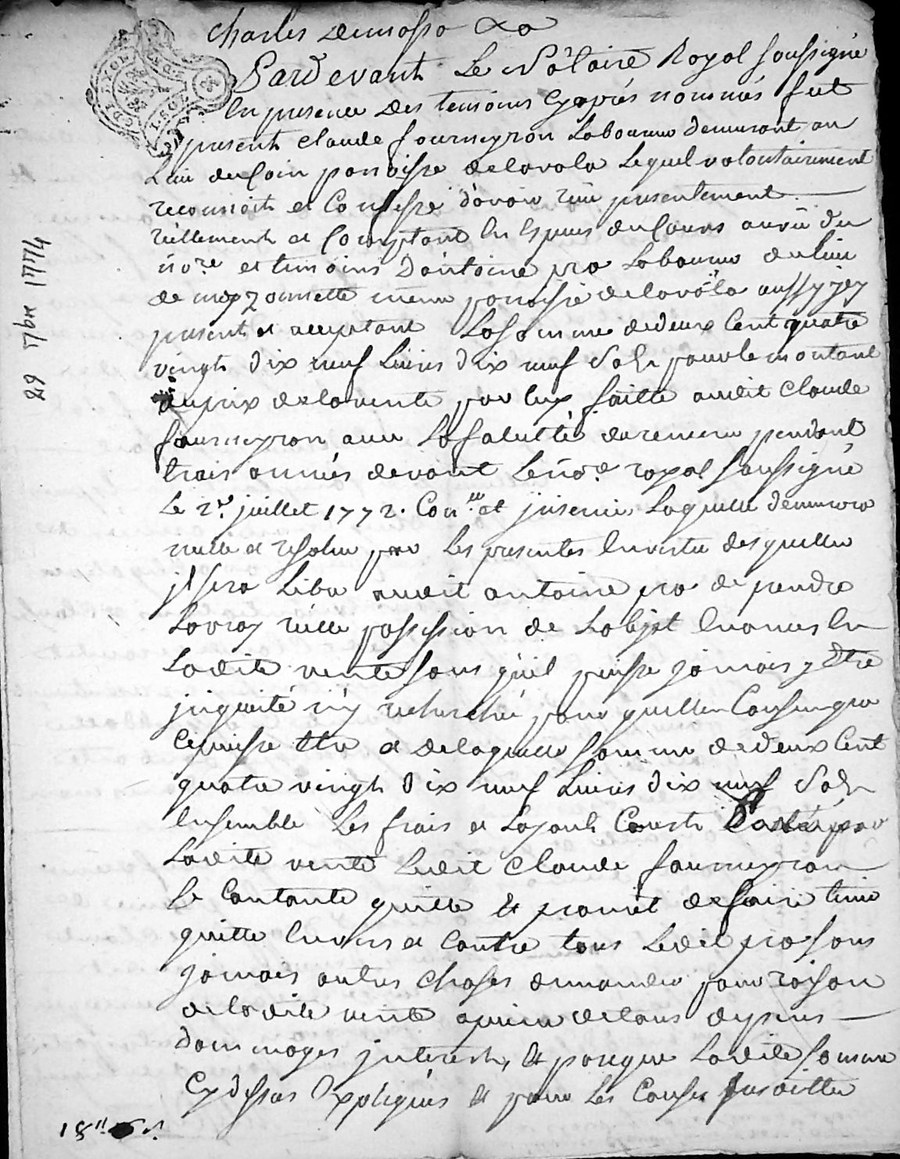 charles
Pardevant Le Notaire Royal soussigné
En presence des temoins Cyaprés nommés fut
present claude fourneyron Laboureur demeurant au
Lieu du parroisse delavola Lequel volontairement
reconnoit et Confesse d'avoir reçu presentement
réellement et Comptant En Especes de Cours au vû du
nore et temoins D'antoine pra Laboureur du lieu
de meme paroisse delavola aussy jcy
present et acceptant La somme dedeux Cent quatre
vingt dix neuf Livres dix neuf Sols pour le montant
du prix delavente par luy faitte audit Claude
fourneyron avec La faculté de remeré pendant
trois années devant Le nore royal soussigné
Le 2e juillet 1772. Conlé et jnsinué Laquelle demeurera
nulle et resolue par Les presentes En vertu desquelles
jl sera Libre audit antoine pra de prendre
La vray réelle possession de L'objet Enoncés En
Ladite vente sans quil puisse jamais y Etre
jnquieté ny recherché pour quelleu Cause que
Ce puisse Etre et de laquelle somme de deux Cent
quatre vingt dix neuf Livres dix neuf Sols
Ensemble Les frais et Loyaux Couts par
Ladite vente Ledit Claude fourneyron
Le Contante quitte & promet de faire tenir
quitte Envers et Contre tous Ledit pra sans
jamais autres Choses demander pour raison
deladite vente a peine de tous depens
dommages jnterests, & parque Ladite somme
Cydessus Expliquée & pour Les Causes susdittes
29 7bre 1774
18